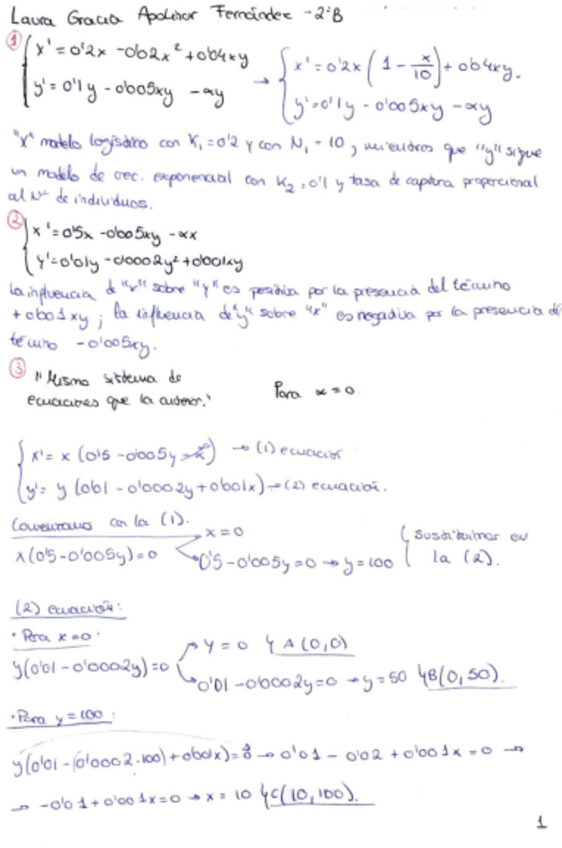 Laura Gracia Apolinar Fernández - 2ºB
① { x' = 0'2x - 0'02x² + 0'04xy → { x' = 0'2x (1 - x/10) + 0'04xy.
y' = 0'1y - 0'005xy - αy y' = 0'1y - 0'005xy - αy
"x" modelo logístico con K₁ = 0'2 y con N₁ = 10, mientras que "y" sigue
un modelo de crec. exponencial con K₂ = 0'1 y tasa de captura proporcional
al Nº de individuos.
② { x' = 0'5x - 0'005xy - αx
y' = 0'01y - 0'0002y² + 0'001xy
La influencia de "x" sobre "y" es positiva por la presencia del término
+0'001xy; la influencia de "y" sobre "x" es negativa por la presencia del
término -0'005xy.
③ "Mismo sistema de
ecuaciones que la anterior." Para α = 0.
{ x' = x (0'5 - 0'005y - α) → (1) ecuación
y' = y (0'01 - 0'0002y + 0'001x) → (2) ecuación.
Comenzamos con la (1).
x(0'5 - 0'005y) = 0 x = 0
0'5 - 0'005y = 0 → y = 100 { Sustituimos en
la (2).
(2) ecuación:
· Para x = 0:
y(0'01 - 0'0002y) = 0 y = 0 { A (0,0)
0'01 - 0'0002y = 0 → y = 50 { B(0,50).
· Para y = 100:
y(0'01 - (0'0002·100) + 0'001x) = 0 → 0'01 - 0'02 + 0'001x = 0 →
→ -0'01 + 0'001x = 0 → x = 10 { C(10,100).
1